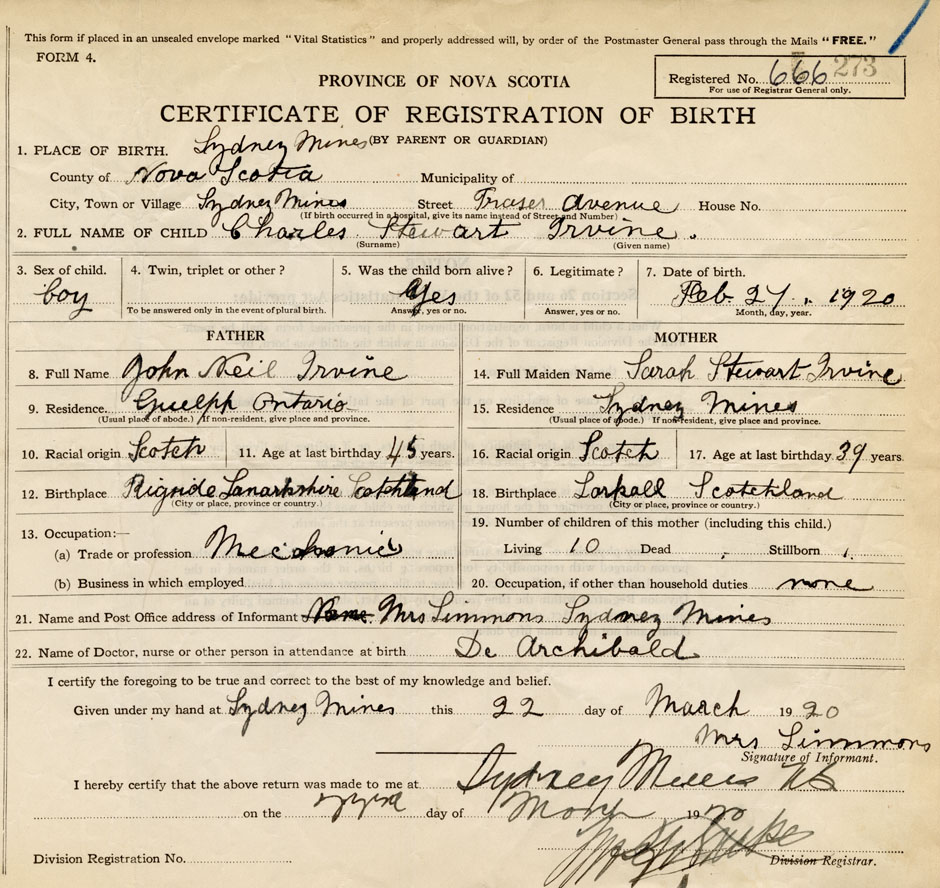 This form if placed in an unsealed envelope marked "Vital Statistics" and properly addressed will, by order of the Postmaster General pass through the Mails "FREE."
FORM 4.
Registered No. 666 273
For use of Registrar General only.
PROVINCE OF NOVA SCOTIA
CERTIFICATE OF REGISTRATION OF BIRTH
(BY PARENT OR GUARDIAN)
1. PLACE OF BIRTH. Sydney Mines
County of Nova Scotia Municipality of
City, Town or Village Sydney Mines Street Fraser Avenue House No.
(If birth occurred in a hospital, give its name instead of Street and Number)
2. FULL NAME OF CHILD Charles Stewart Irvine.
(Surname) (Given name)
3. Sex of child. 4. Twin, triplet or other? 5. Was the child born alive? 6. Legitimate? 7. Date of birth.
boy Yes Feb. 27. 1920
To be answered only in the event of plural birth. Answer, yes or no. Answer, yes or no. Month, day, year.
FATHER MOTHER
8. Full Name John Neil Irvine 14. Full Maiden Name Sarah Stewart Irvine
9. Residence. Guelph Ontario 15. Residence Sydney Mines
(Usual place of abode.) If non-resident, give place and province. (Usual place of abode.) If non-resident, give place and province.
10. Racial origin Scotch 11. Age at last birthday 45 years. 16. Racial origin Scotch 17. Age at last birthday 39 years.
12. Birthplace Lanarkshire 18. Birthplace Scotchland
(City or place, province or country.) (City or place, province or country.)
13. Occupation:— 19. Number of children of this mother (including this child.)
(a) Trade or profession Mechanic Living 10 Dead Stillborn 1.
(b) Business in which employed 20. Occupation, if other than household duties none
21. Name and Post Office address of Informant Mrs Simmons Sydney Mines
22. Name of Doctor, nurse or other person in attendance at birth Dr Archibald
I certify the foregoing to be true and correct to the best of my knowledge and belief.
Given under my hand at Sydney Mines this 22 day of March 1920
Mrs Simmons
Signature of Informant.
I hereby certify that the above return was made to me at Sydney Mines NS
on the day of March 1920
Division Registration No. Division Registrar.